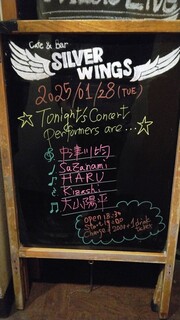 Cafe & bar
SILVER
WINGS
2025/01/28 (TUE)
Tonight's Concert
Performers are...
SaZanami
HARU
Kizashi
大山陽平
open 18:30
Start 19:00
Charge